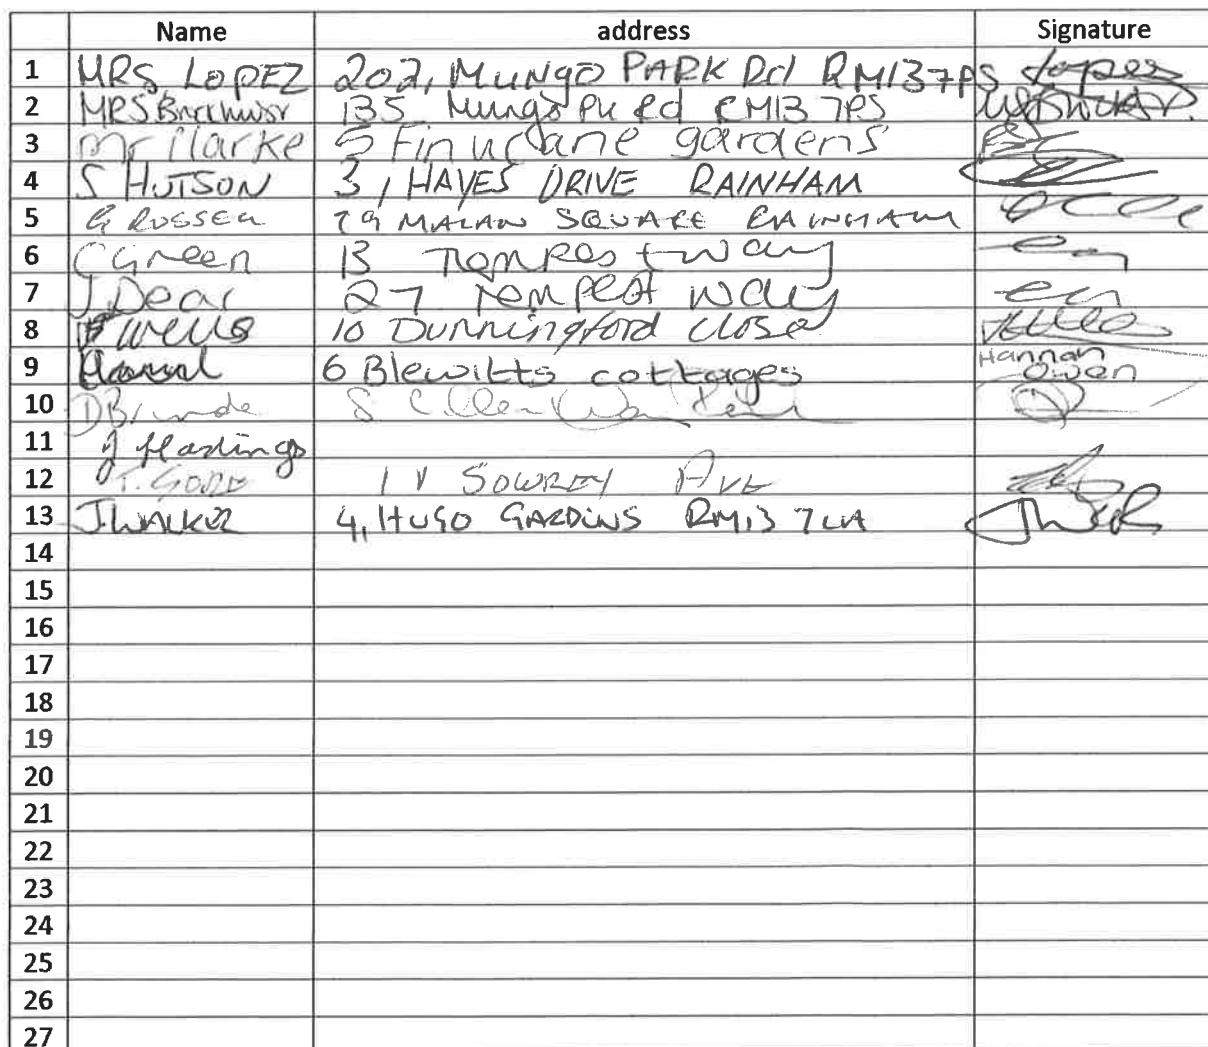 Name address Signature
1 MRS LOPEZ 202, MUNGO PARK Rd RM137PS Lopez
2 MRS 135 Mungo Pk Rd RM13 7PS
3 Mr Clarke 5 Finucane gardens
4 S HUTSON 3, HAYES DRIVE RAINHAM
5 G RUSSELL 79 MALAN SQUARE RAINHAM
6 C Green 13 Tempest way
7 J Dear 27 Tempest way
8 Wells 10 Dunningford close
9 6 Blewitts cottages Hannah Owen
10
11 J Hastings
12 T. GORE SOWREY AVE
13 J. WALKER 4, HUGO GARDENS RM13 7LA
14
15
16
17
18
19
20
21
22
23
24
25
26
27